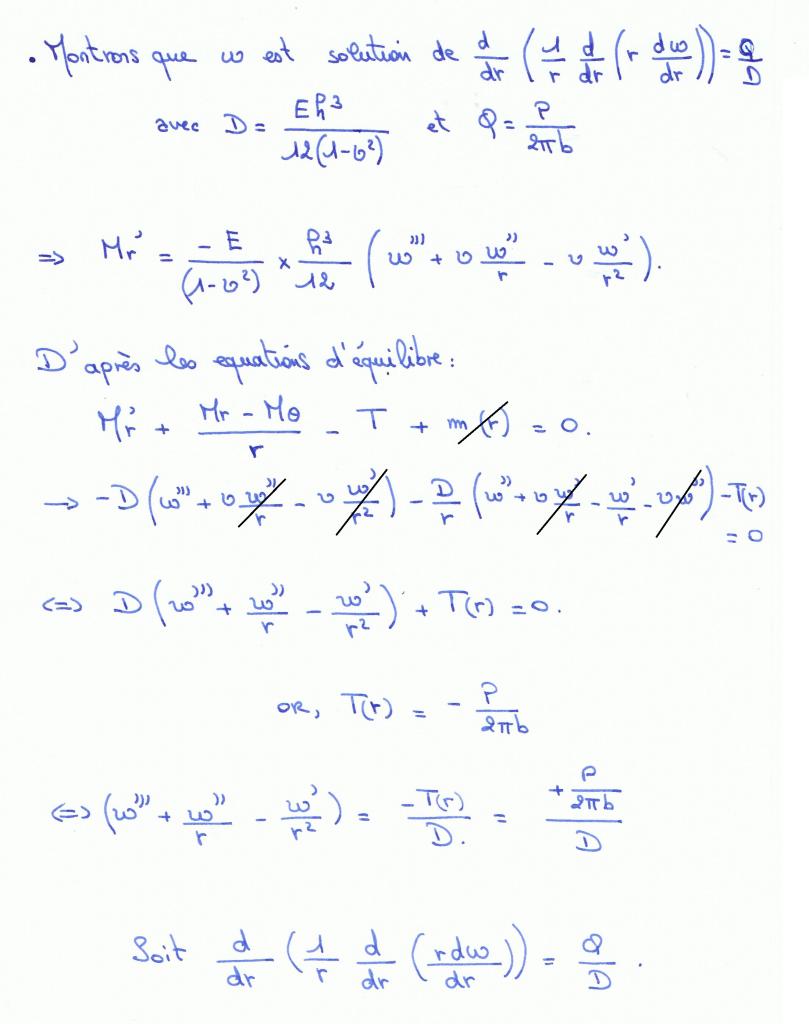 . Montrons que w est solution de d/dr (1/r d/dr (r dw/dr)) = Q/D
avec D = Eh³/12(1-υ²) et Q = P/2πb
⇒ Mr' = -E/(1-υ²) × h³/12 (w''' + υ w''/r - υ w'/r²).
D'après les equations d'équilibre :
Mr' + (Mr - Mθ)/r - T + m(r) = 0.
→ -D (w''' + υ w''/r - υ w'/r²) - D/r (w'' + υ w'/r - w'/r - υw'') - T(r) = 0
⇔ D (w''' + w''/r - w'/r²) + T(r) = 0.
OR, T(r) = - P/2πb
⇔ (w''' + w''/r - w'/r²) = -T(r)/D. = (+ P/2πb)/D
Soit d/dr (1/r d/dr (rdw/dr)) = Q/D .